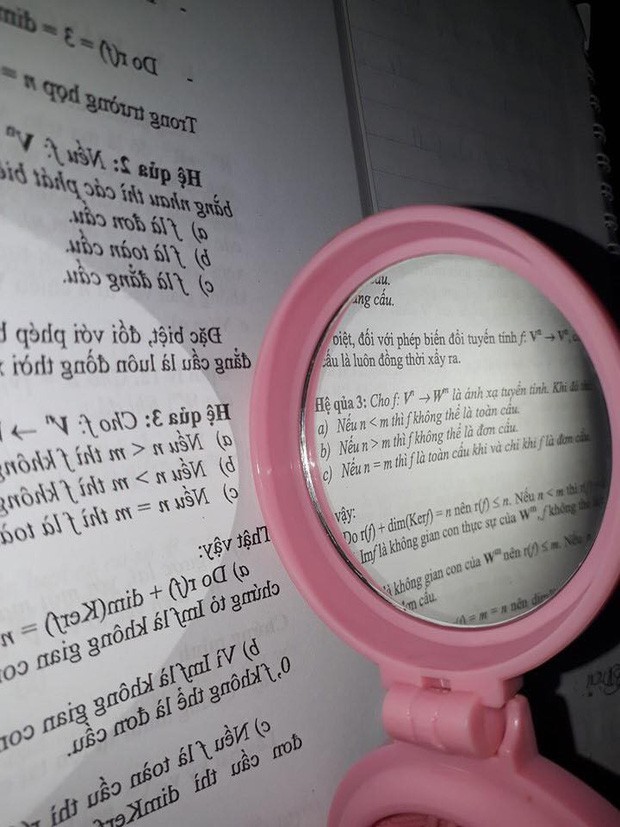 Do r(f) = 3 = dim
Trong trường hợp n =
Hệ qủa 2: Nếu f: Vⁿ
bằng nhau thì các phát
a) f là đơn cấu.
b) f là toàn cấu.
c) f là đẳng cấu.
Đặc biệt, đối với phép
đẳng cấu là luôn đồng thời
Hệ qủa 3: Cho f: Vⁿ →
a) Nếu n < m thì f không
b) Nếu n > m thì f không
c) Nếu n = m thì f là toàn
Thật vậy:
a) Do r(f) + dim(Kerf) = n
chứng tỏ Imf là không gian con
b) Vì Imf là không gian con
0, f không thể là đơn cấu.
c) Nếu f là toàn cấu thì
đơn cấu thì dimKerf
cấu.
biệt, đối với phép biến đổi tuyến tính f: Vⁿ → Vⁿ,
cấu là luôn đồng thời xẩy ra.
Hệ qủa 3: Cho f: Vⁿ → Wᵐ là ánh xạ tuyến tính. Khi đó
a) Nếu n < m thì f không thể là toàn cấu.
b) Nếu n > m thì f không thể là đơn cấu.
c) Nếu n = m thì f là toàn cấu khi và chỉ khi f là đơn cấu.
vậy:
Do r(f) + dim(Kerf) = n nên r(f) ≤ n. Nếu n < m thì
Imf là không gian con thực sự của Wᵐ, f không thể
là không gian con của Wᵐ nên r(f) ≤ m. Nếu
đơn cấu.
= m = n nên